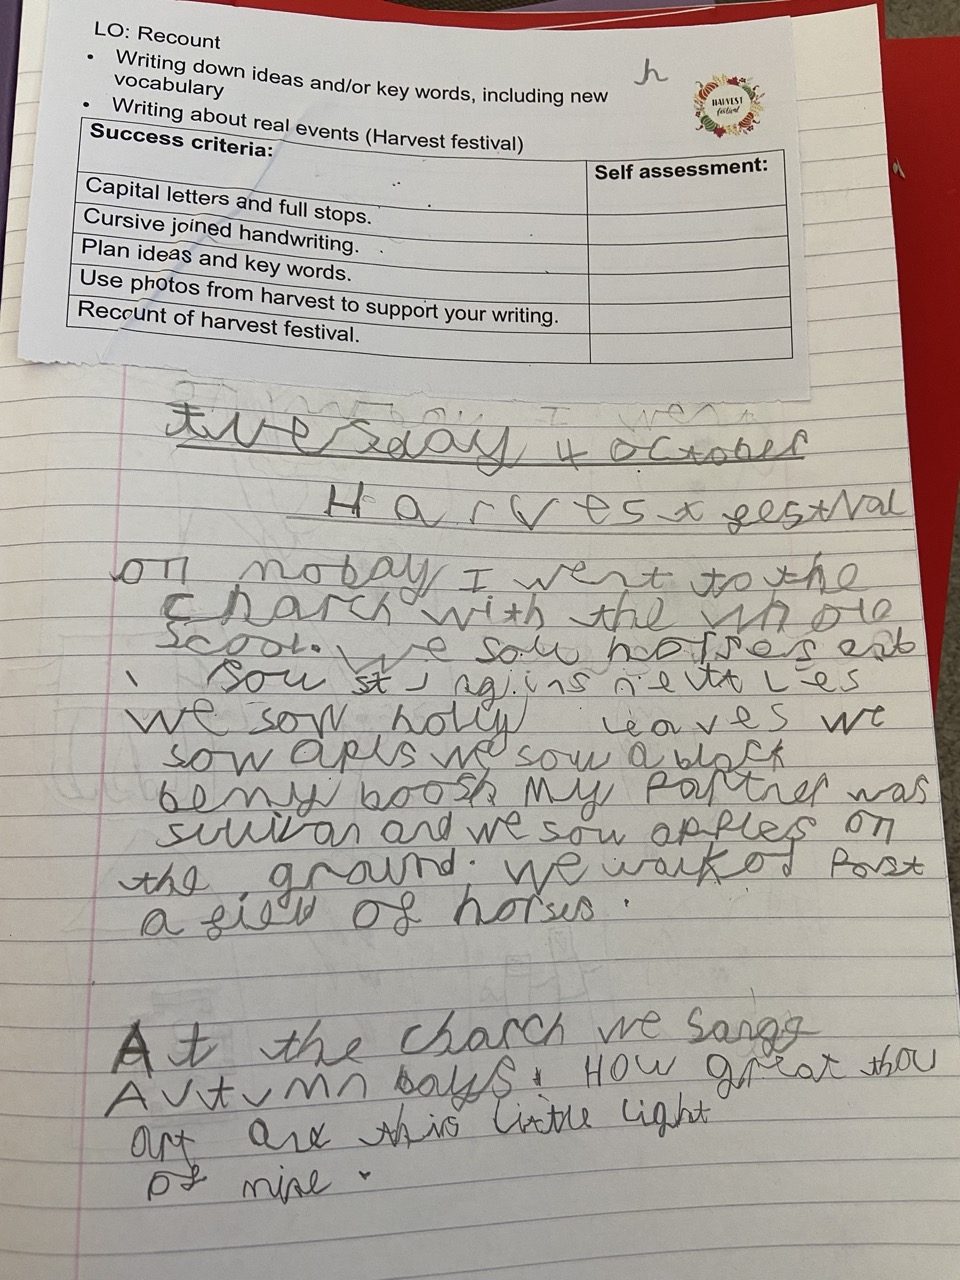 LO: Recount
• Writing down ideas and/or key words, including new
vocabulary
• Writing about real events (Harvest festival)
h
HARVEST
festival
Success criteria:
Self assessment:
Capital letters and full stops.
Cursive joined handwriting.
Plan ideas and key words.
Use photos from harvest to support your writing.
Recount of harvest festival.
tuesday 4 october
Harvest festval
on mobay I went to the
charch with the whole
scool. We sow horses
sow stingins
We sow holly leaves we
sow apls we sow a black
berry boosh My Partner was
sullivan and we sow apples on
the ground. we walkod Past
a field of horses.
At the charch we sang
Autumn bays. How great thou
art and this little light
of mine.